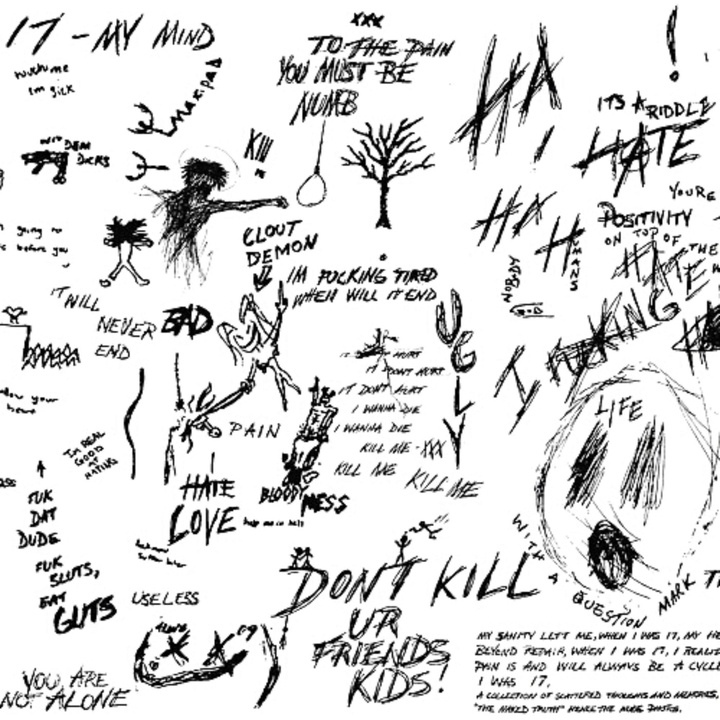 17 - MY MIND
XXX
TO THE PAIN
YOU MUST BE
NUMB
HA
!
IT'S A RIDDLE
HATE
KILL
ME
WIT DEM
DICKS
HA
HA
HUMANS
NOBODY
YOU'RE
POSITIVITY
ON TOP OF
HATE
THE
CLOUT
DEMON
IM FUCKING TIRED
WHEN WILL IT END
IT WILL
NEVER
END
BAD
UGLY
I FUCKING
LIFE
IT DON'T HURT
IT DONT HURT
I WANNA DIE
I WANNA DIE
KILL ME - XXX
KILL ME
KILL ME
PAIN
IM REAL
GOOD
AT
HATING
HATE
LOVE
BLOODY
MESS
FUK
DAT
DUDE
FUK
SLUTS,
EAT
GUTS
USELESS
WITH A QUESTION MARK
DON'T KILL
UR
FRIENDS
KIDS!
YOU ARE
NOT ALONE
MY SANITY LEFT ME, WHEN I WAS 17, MY
BEYOND REPAIR, WHEN I WAS 17, I
PAIN IS AND WILL ALWAYS BE A
I WAS 17,
A COLLECTION OF SCATTERED THOUGHTS AND MEMORIES,
"THE NAKED TRUTH" HENCE THE NUDE PHOTOS.